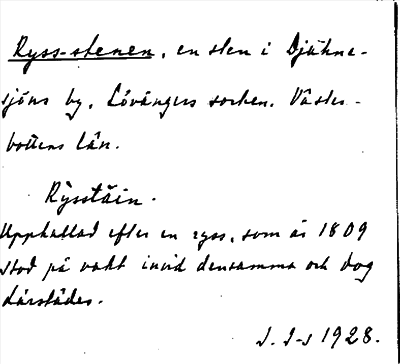 Ryss-stenen, en sten i Djäkne-
sjöns by, Lövångers socken. Väster-
bottens län.
Rysstäin.
Uppkallad efter en ryss, som år 1809
stod på vakt invid densamma och dog
därstädes.
J. J-s 1928.